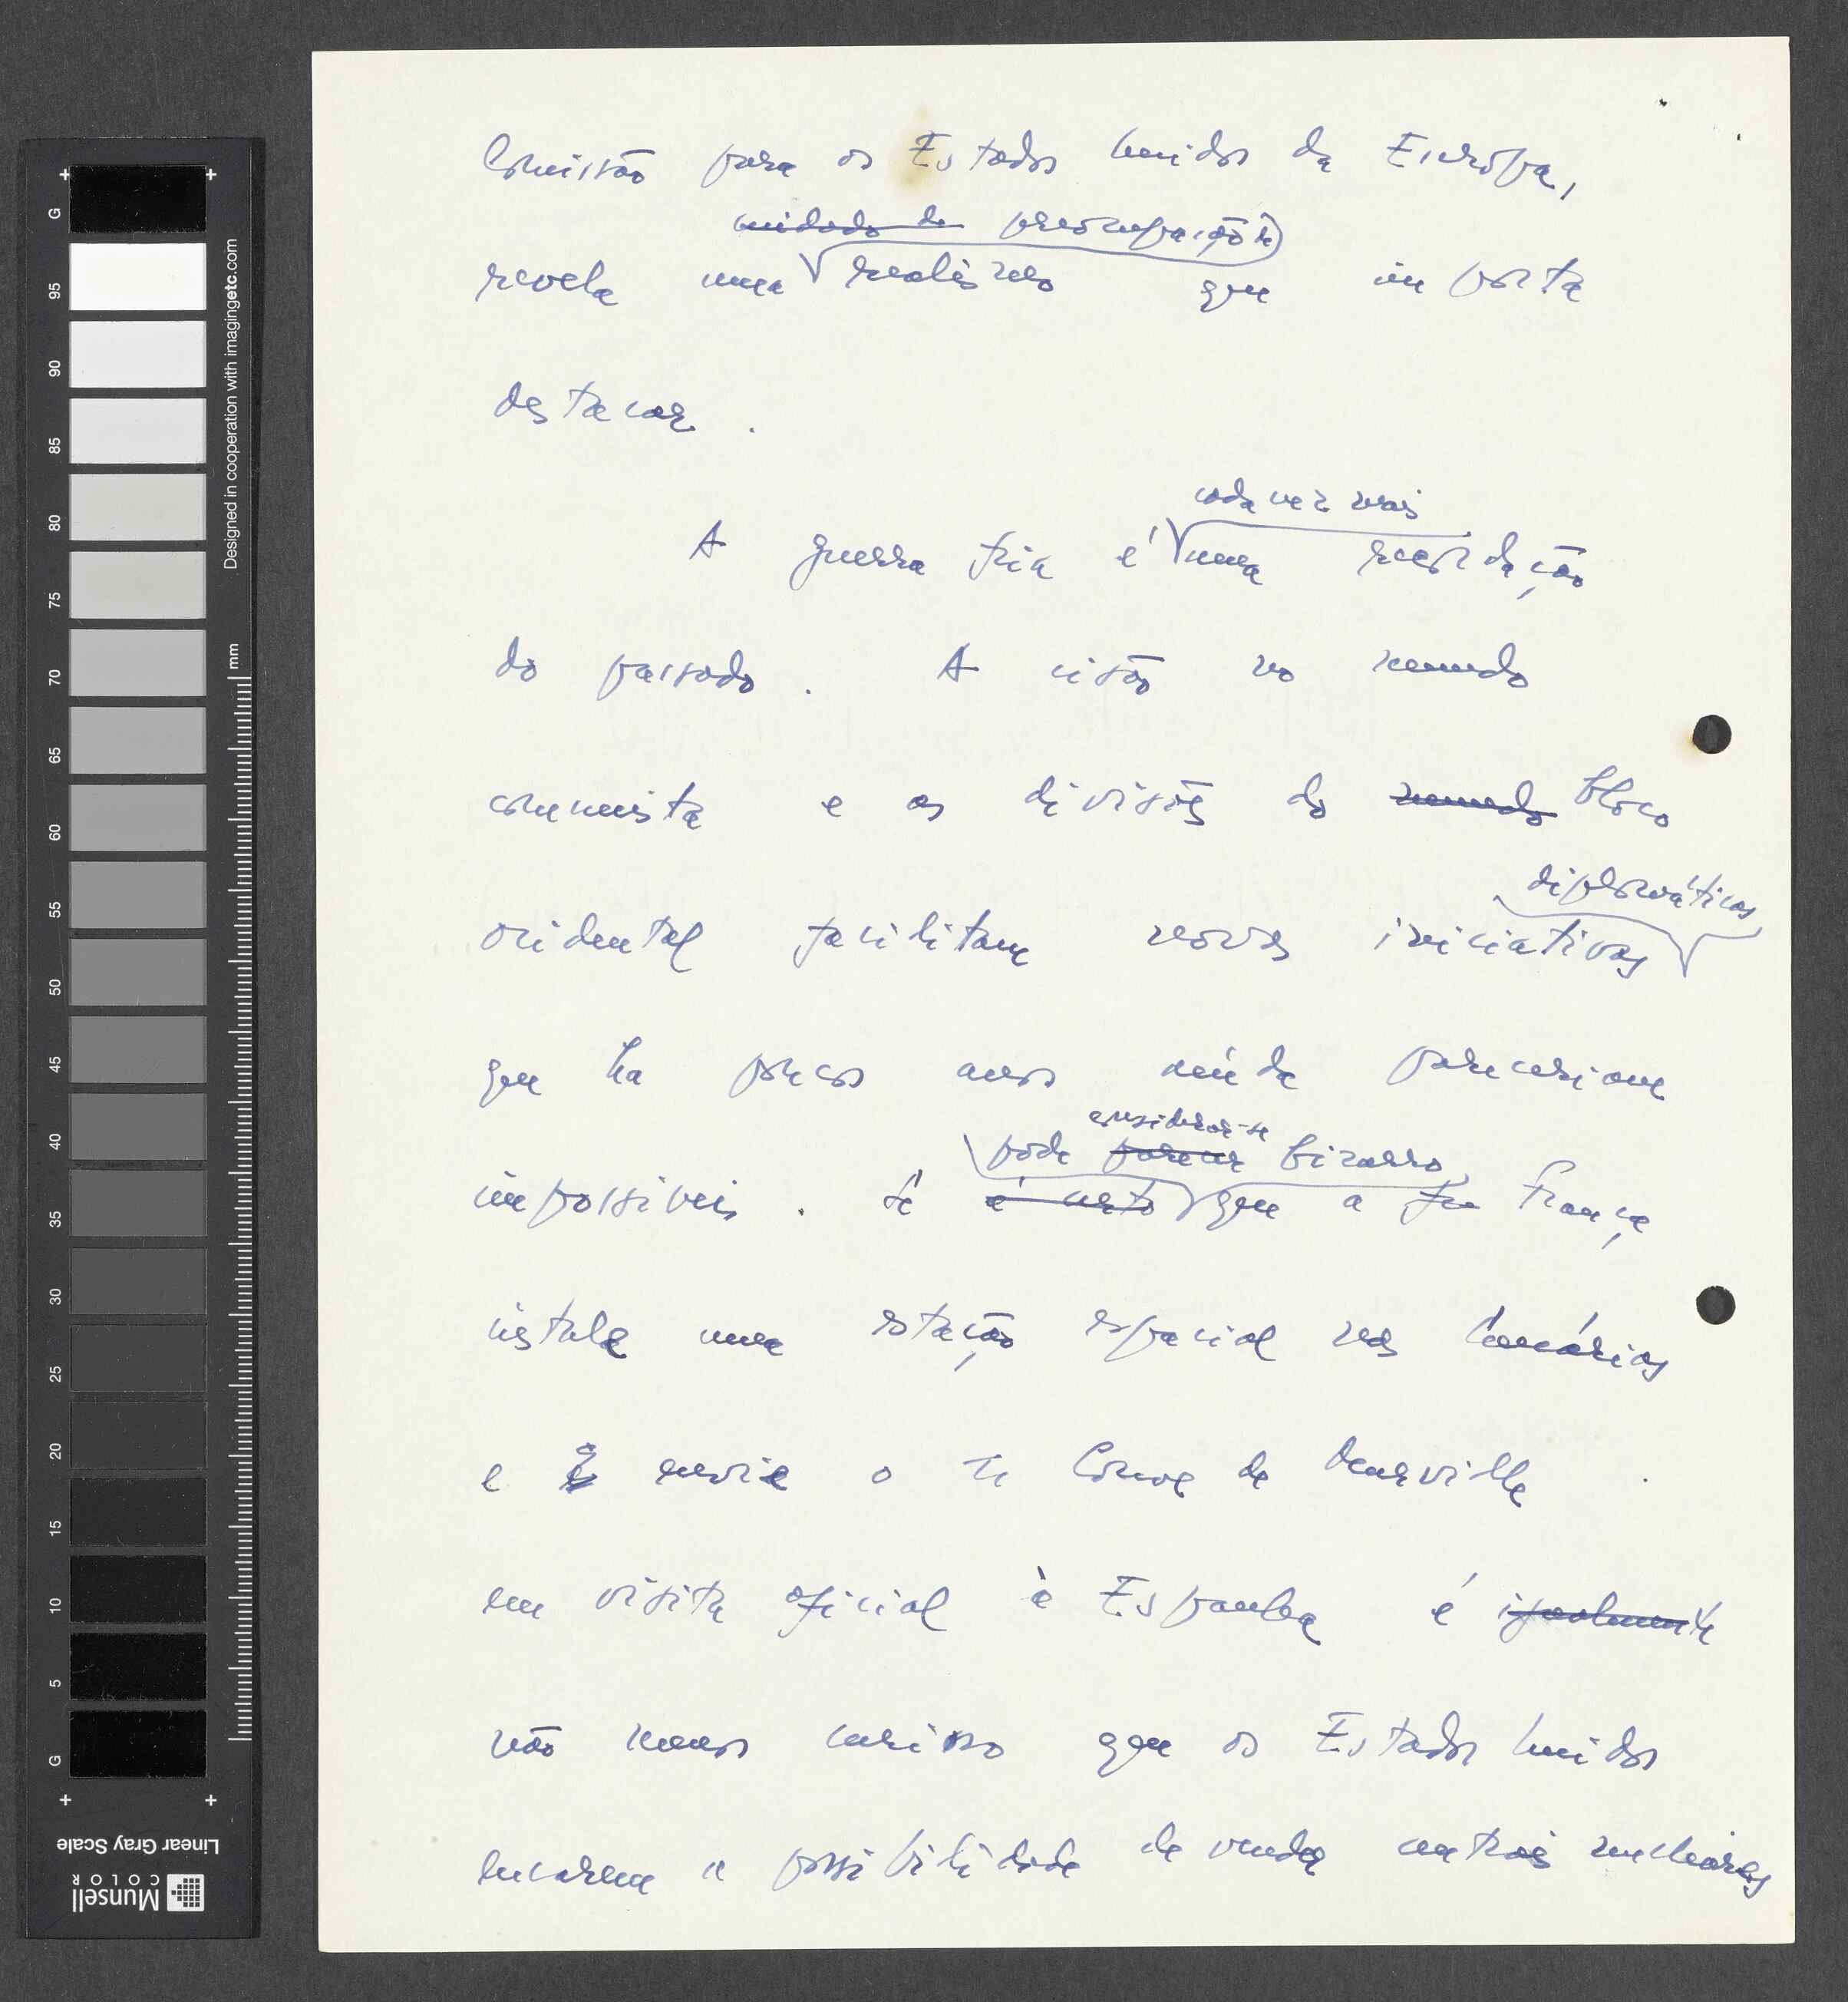 Comissão para os Estados Unidos da Európa,
cuidado de preocupação de
revela uma realismo que importa
destacar.
cada vez mais
A guerra fria é uma recordação
do passado. A cisão no mundo
comunista e as divisões do mundo bloco
diplomáticas
ocidental facilitam novas iniciativas
que ha poucos anos ainda pareceriam
considerar-se
pode parecer bizarro
impossiveis. Se é certo que a Fra França
instale uma estação espacial nas Canárias
e envie o Couve de Murville
em visita oficial à Espanha é igualmente
não menos curioso que os Estados Unidos
encarem a possibilidade de venda centrais nucleares
Designed in cooperation with imagingetc.com
mm
G 95 90 85 80 75 70 65 60 55 50 45 40 35 30 25 20 15 10 5 G
Linear Gray Scale
Munsell
COLOR